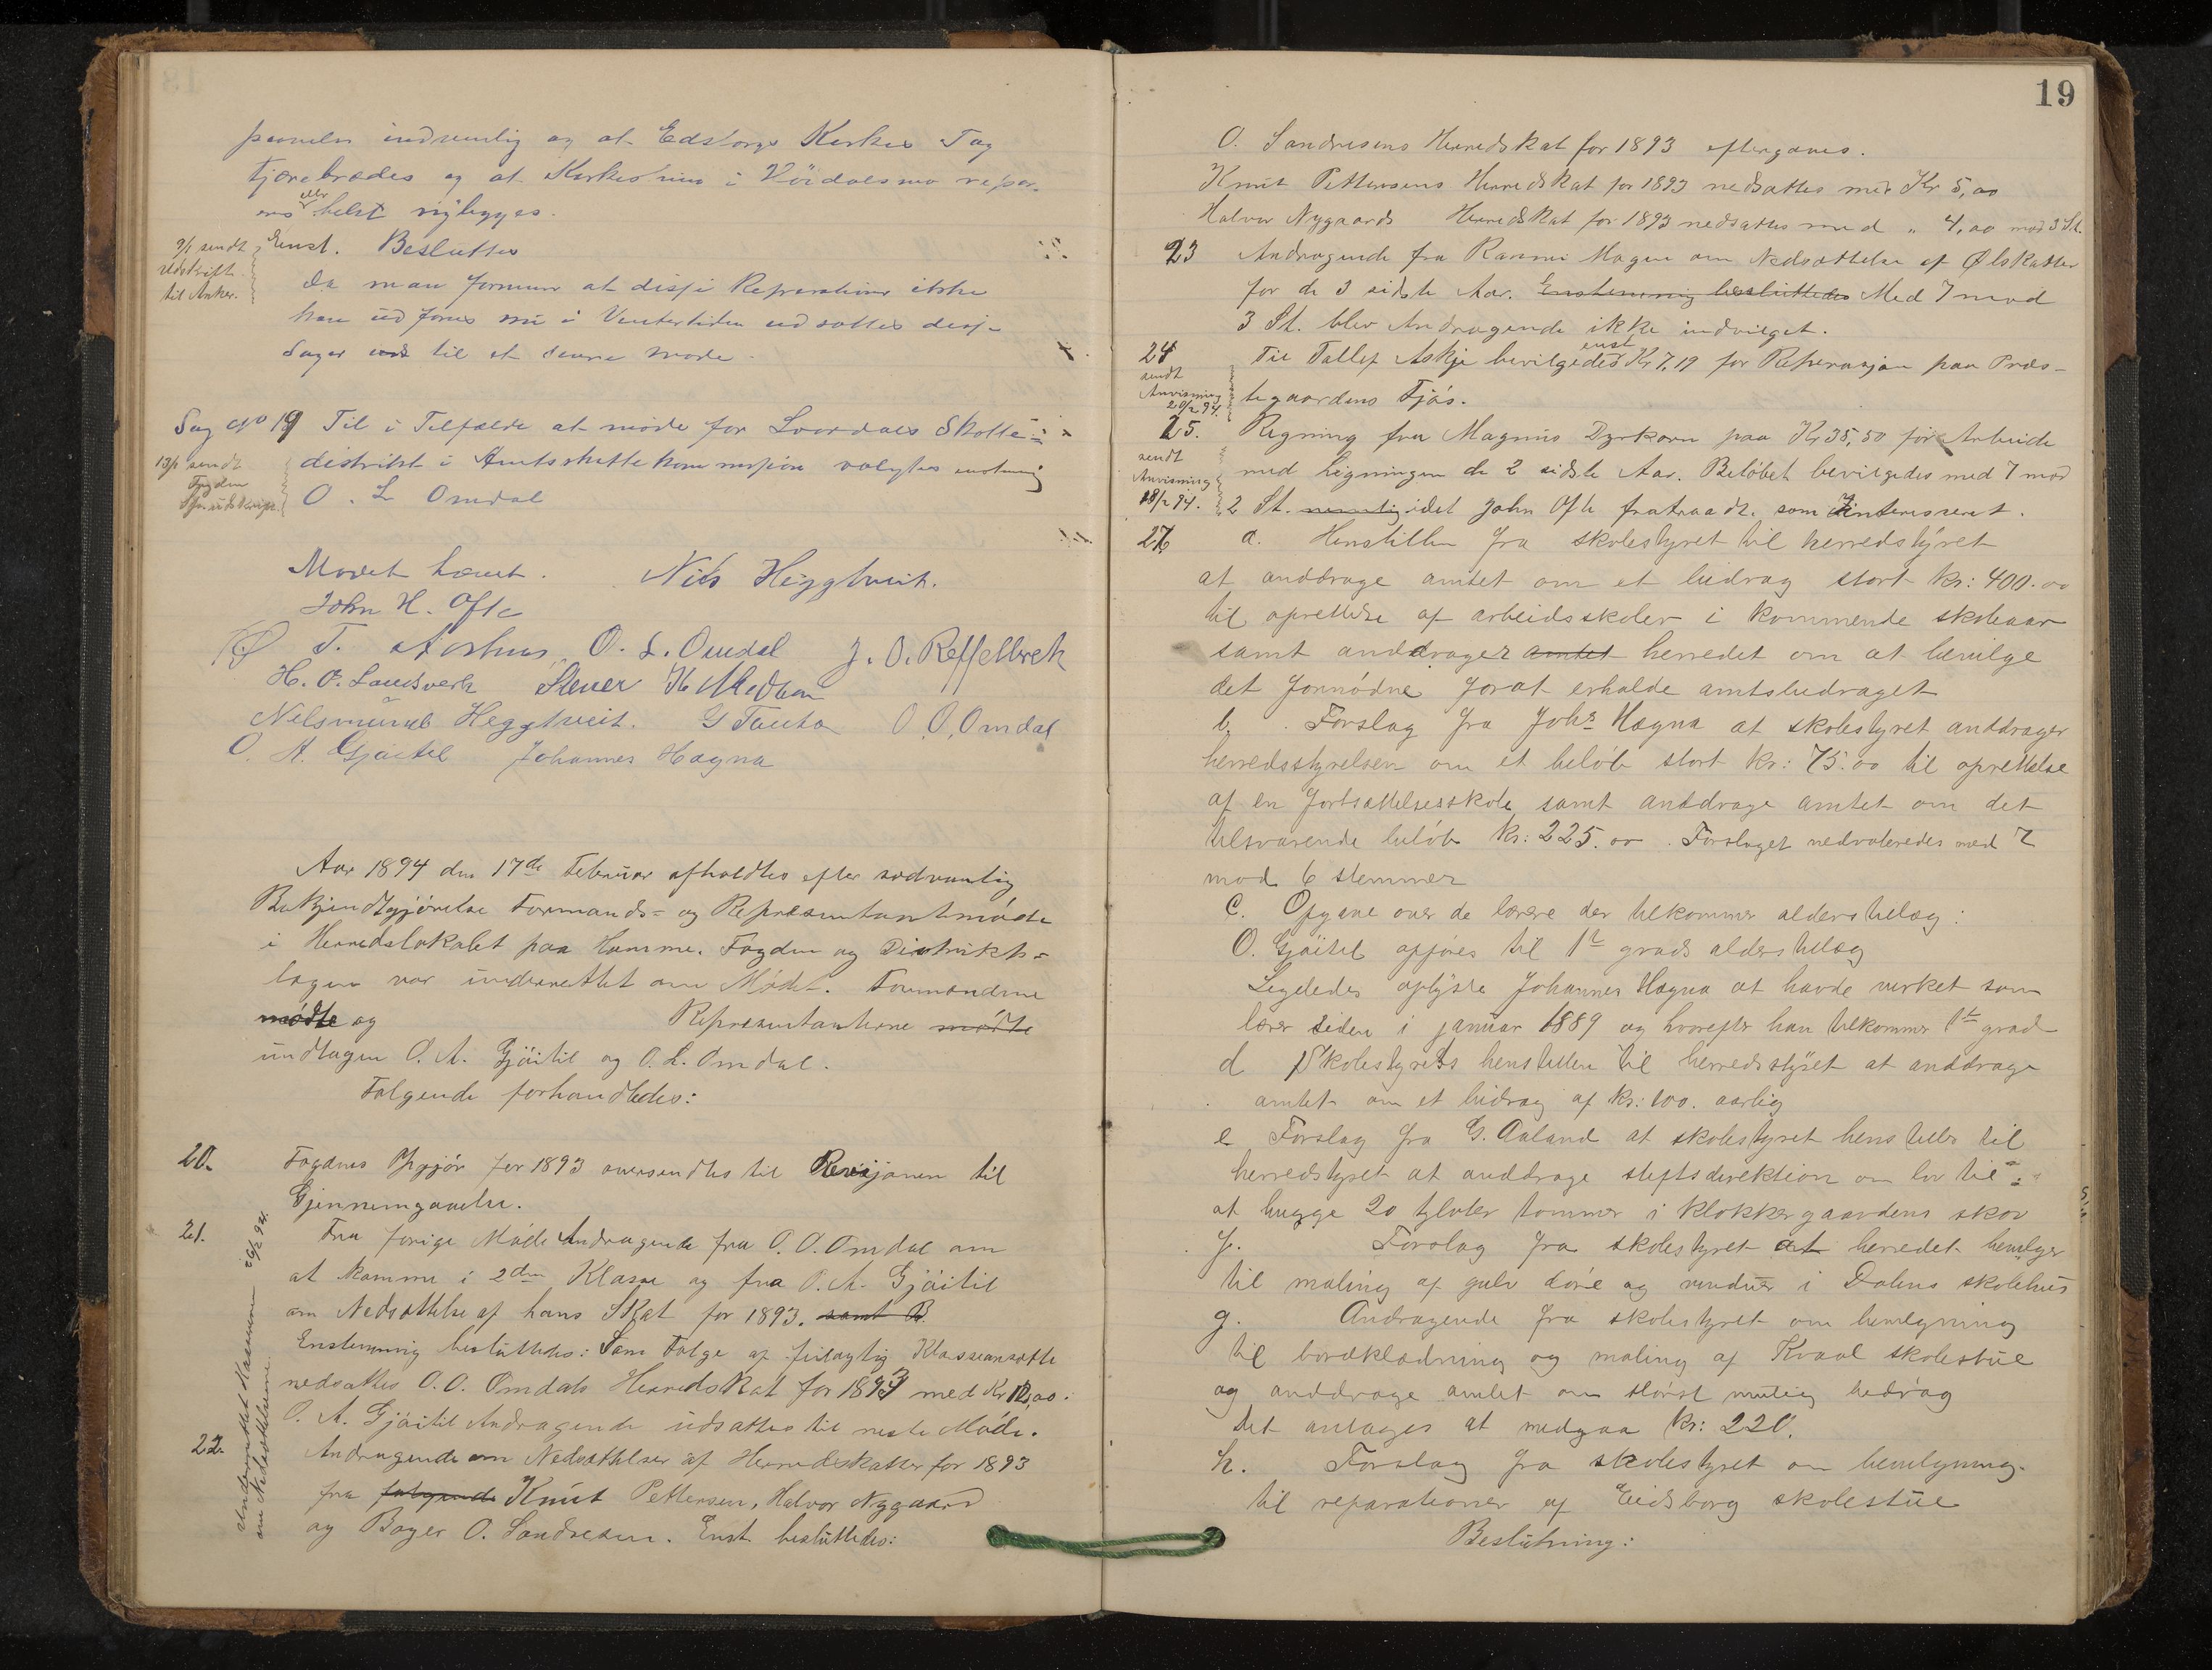 indvendig og at Edsborgs Kirkes Tag
tjærebrædes og at i repar-
eres eller helst nybygges.
9/1 sendt Udskrift til Anker.
Enst. Besluttes
Da man formener at disse Reparationer ikke
kan udføres nu i Vintertiden udsættes disse
Sager til et senere Møde.
Sag No 19 Til i Tilfælde at møde for Laardals Skatte-
distrikt i Amtsskattekommissionen valgtes enstemmig
O. L. Omdal
13/1 sendt Fogden
Mødet hævet. Nils Heggtveit.
John H. Ofte
T. Aarhus O. L. Omdal J. O. Reffelbrek
H. O. Landsverk Stener K Midtbøen
Heggtveit. G Tveito O. O. Omdal
O. A. Gjøitil Johannes Hægna
Aar 1894 den 17de Februar afholdtes efter sædvanlig
Bekjendtgjørelse Formands- og Representantmøde
i Herredslokalet paa Hamme. Fogden og Distrikts-
lægen var underrettet om Mødet. Formændene
mødte og Representanterne mødte
undtagen O. A. Gjøitil og O. L. Omdal.
Følgende forhandledes:
20. Fogdens Opgjør for 1893 oversendtes til Revisjonen til
Gjennemgaaelse.
21. Fra forige Møde Andragende fra O. O. Omdal om
at komme i 2den Klasse og fra O. A. Gjøitil
om Nedsættelse af hans Skat for 1893. samt B.
Enstemmig besluttedes: Som Følge af feilagtig Klasseansætte
nedsættes O. O. Omdals Herredskat for 1893 med Kr 12,00.
O. A. Gjøitil Andragende udsættes til neste Møde.
22. Andragende om Nedsættelser af Herredsskatter for 1893
fra følgende Knut Pettersen, Halvor Nygaard
og Bager O. Sandresen. Enst. besluttedes:
Underrettet Kasseren 26/2 94.
om Nedsættelserne.
19
O. Sandresens Herredskat for 1893 eftergives.
Knut Pettersens Herredskat for 1893 nedsættes med Kr 5,00
Halvor Nygaards Herredskat for 1893 nedsættes med " 4,00 mod 3 St.
23 Andragende fra Hagen om Nedsættelse af Ølskatter
for de 3 sidste Aar. Enstemmig besluttedes Med 7 mod
3 St. blev Andragende ikke indvilget.
24 Til Tallef Askje bevilgedes enst Kr 7,19 for Reperasjon paa Præs-
tegaardens Fjøs.
sendt Anvisning 20/2 94.
25. Regning fra Magnus Dyrkorn paa Kr 35,50 for Arbeide
med Ligningen de 2 sidste Aar. Beløbet bevilgedes med 7 mod
2 St. nemlig idet John Ofte fratraadte som interesseret.
sendt Anvisning 28/2 94.
26 a. Henstillen fra skolestyret til herredstyret
at anddrage amtet om et bidrag stort kr: 400.00
til oprettelse af arbeidsskoler i kommende skoleaar
samt anddrager amtet herredet om at bevilge
det fornødne forat erholde amtsbidraget
b. Forslag fra Johs Hægna at skolestyret anddrager
herredsstyrelsen om et beløb stort kr: 75.00 til oprettelse
af en fortsættelsesskole samt anddrage amtet om det
tilsvarende beløb kr: 225.00. Forslaget nedvoteredes med 7
mod 6 stemmer
c. Opgave over de lærere der tilkommer alderstillæg:
O. Gjøitil opføres til 1te grads alderstillæg
Ligeledes oplyste Johannes Hægna at havde virket som
lærer siden i januar 1889 og hvorefter han tilkommer 1te grad
d Skolestyrets henstillen til herredsstyret at anddrage
amtet om et bidrag af kr: 100. aarlig
e Forslag fra G. Aaland at skolestyret henstiller til
herredstyret at anddrage stiftsdirektion om lov til
at hugge 20 tylvter tømmer i klokkergaardens skov
f. Forslag fra skolestyret at herredet bevilger
til maling af gulv døre og vinduer i Dalens skolehus
g. Andragende fra skolestyret om bevilgning
til bordklædning og maling af Kvaal skolestue
og anddrage amtet om størst mulig bedrag
det antages at medgaa kr: 220.
h. Forslag fra skolestyret om bevilgning
til reparationer af Eidsborg skolestue
Beslutning: